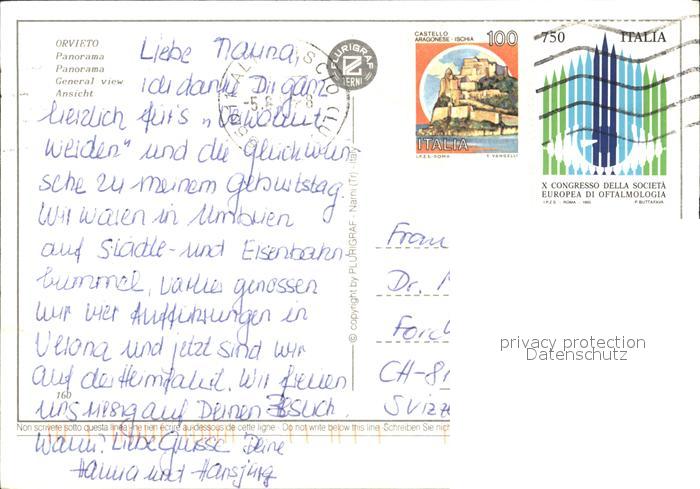 ORVIETO
Panorama
Panorama
General view
Ansicht
Liebe Nanna,
ich danke Dir ganz
herzlich für's „Verwöhnt
werden" und die Glückwün-
sche zu meinem Geburtstag.
Wir waren in Umbrien
auf Städte- und Eisenbahn-
bummel, vorher genossen
wir vier Aufführungen in
Verona und jetzt sind wir
auf der Heimfahrt. Wir freuen
uns riesig auf Deinen Besuch.
Wann? Liebe Grüsse Deine
Hanna und Hansjürg
160
Non scrivere sotto questa linea - ne rien écrire au-dessous de cette ligne - Do not write below this line - Schreiben Sie nicht
© copyright by PLURIGRAF - Narni (Tr) - Italy
PLURIGRAF
TERNI
CASTELLO
ARAGONESE - ISCHIA
100
ITALIA
I.P.Z.S. - ROMA
T. VANGELLI
750
ITALIA
X CONGRESSO DELLA SOCIETÀ
EUROPEA DI OFTALMOLOGIA
I.P.Z.S. - ROMA - 1995
P. BUTTAFAVA
Frau
Dr.
Forch
CH-81
Svizze
privacy protection
Datenschutz